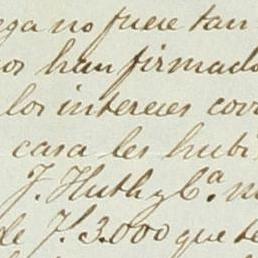 ega no fuese tan
os han firmado
los intereses cor
casa les hubi
F. Huth y Ca. n
de £ 3.000 que te